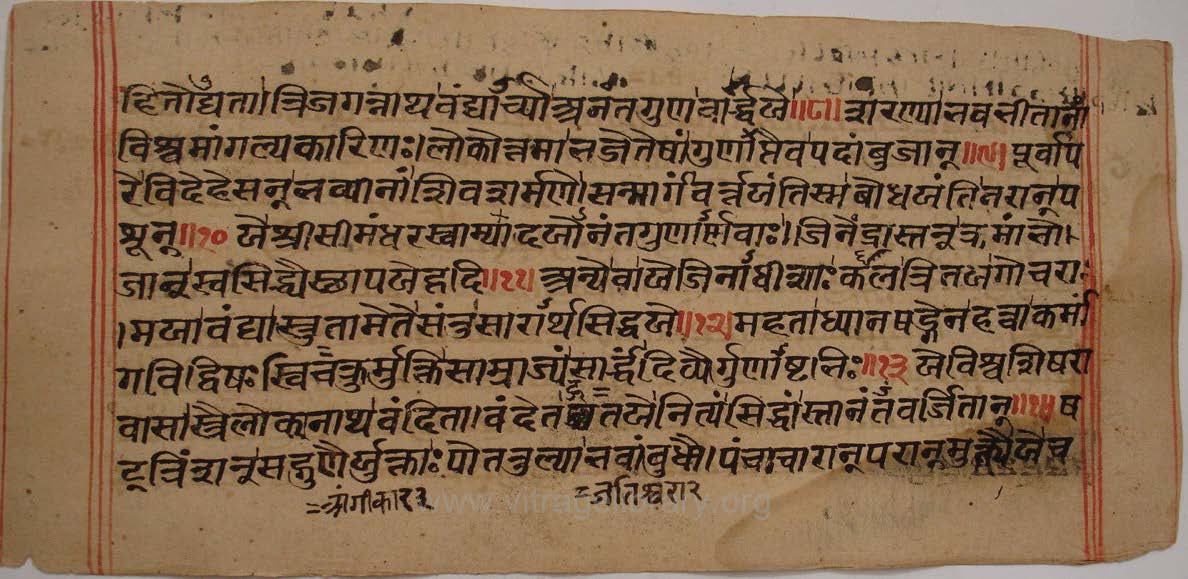 हितोद्यता। त्रिजगन्नाथवंद्यार्च्या अनंतगुणवार्द्धये॥८॥ शरण्यानवनीतानां
विश्वमांगल्यकारिणः। लोकोत्तमान्नजेतेषां गुणाप्त्यै वपदांबुजान्॥९॥ पूर्वाप
रविदेहेसन् नव्यानां शिवशर्मणे। सन्मार्गं वर्त्तयंतिस्म बोधयंति नरान् प
श्रून्॥१० ये श्रीसीमंधरस्वाम्याद्यौनंतगुणार्णवाः। जिनेंद्रास्तनुक्रमांनो।
जानुस्वसिद्ध्यै स्थापये हृदि॥११। अन्ये वा ये जिनाधीशाः कलत्रितयगोचराः
।मया वंद्यास्तुतामेते संतु सारार्थसिद्धये॥१२। महताध्यानषड्गेनहत्वाकर्मां
गविद्विषः स्विचक्रुर्मुक्तिसाम्राज्यं सार्द्धं दिव्यैर्गुणाष्टनिः॥१३ ये विश्वशिषरा
वासास्त्रैलोक्यनाथवंदिता। वंदे त तये नित्यं सिद्धांस्तानंतवर्जितान्॥१४॥ ष
ट्त्रिंशनुसद्गुणैर्युक्ताः पोततुल्यानवांबुधौ। पंचाचारान् परान् मुक्त्यै ये च
=अंगीकार३ =जतिश्वरा२
www.vitragelibrary.org